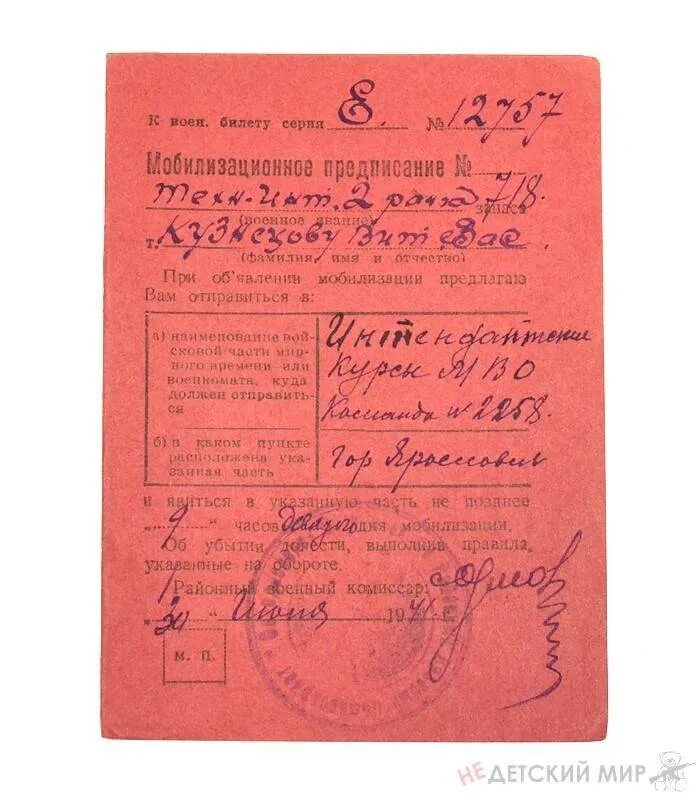 К воен. билету серия Е. № 12757
Мобилизационное предписание № 718.
техн-инт. 2 ранга запаса
(военное звание)
т. Кузнецову Вит Вас.
(фамилия, имя и отчество)
При об'явлении мобилизации предлагаю
Вам отправиться в:
а) наименование вой-
сковой части мир-
ного времени или
военкомата, куда
должен отправить-
ся
Интендантские
Курсы МВО
Команда № 2258.
б) в каком пункте
расположена ука-
занная часть
гор Ярославль
и явиться в указанную часть не позднее
„ 9 “ часов девятого дня мобилизации.
Об убытии донести, выполнив правила,
указанные на обороте.
Районный военный комиссар:
„ 20 “ июня 1941 г.
М. П.
НЕДЕТСКИЙ МИР